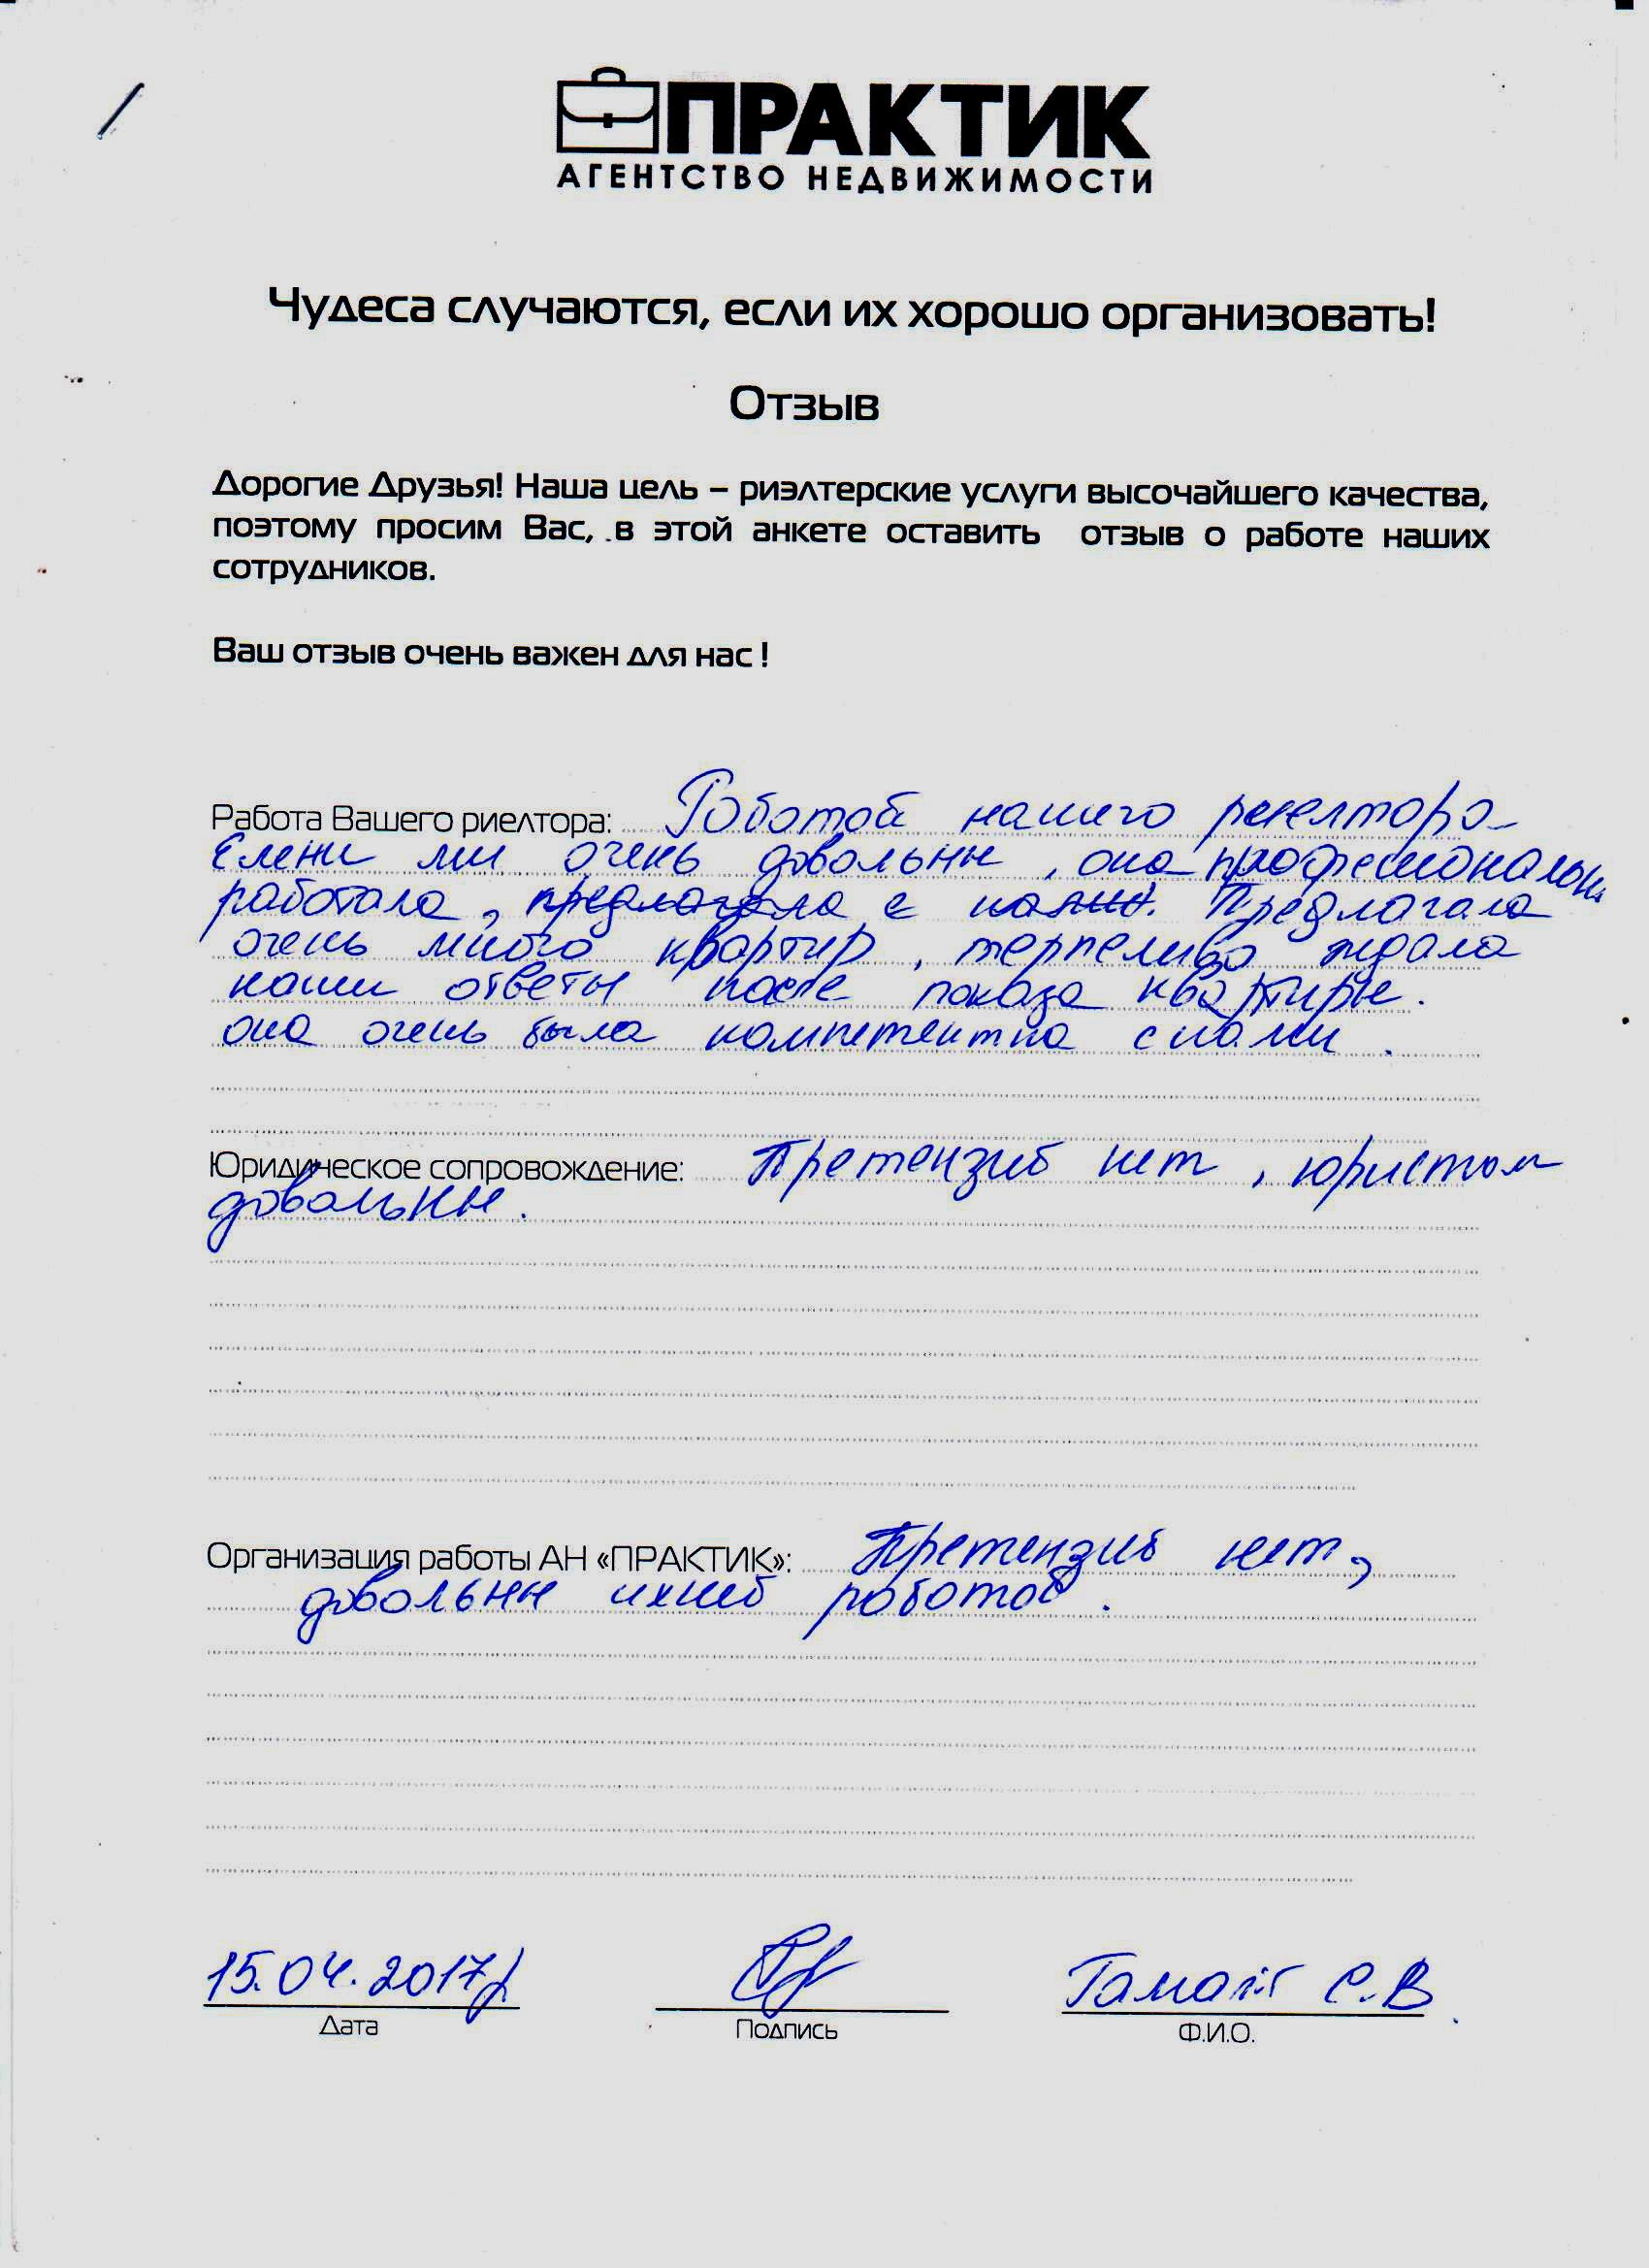 ПРАКТИК
АГЕНТСТВО НЕДВИЖИМОСТИ
Чудеса случаются, если их хорошо организовать!
Отзыв
Дорогие Друзья! Наша цель – риэлтерские услуги высочайшего качества,
поэтому просим Вас, в этой анкете оставить отзыв о работе наших
сотрудников.
Ваш отзыв очень важен для нас !
Работа Вашего риелтора: Работой нашего риелтора
Елены мы очень довольны, она профессионально
работала, предлагала с нами. Предлагала
очень много квартир, терпеливо ждала
наши ответы после показа квартиры.
она очень была компетентна с нами.
Юридическое сопровождение: Претензий нет, юристом
довольны.
Организация работы АН «ПРАКТИК»: Претензий нет,
довольны ихней работой.
15.04.2017г С.В
Дата Подпись Ф.И.О.